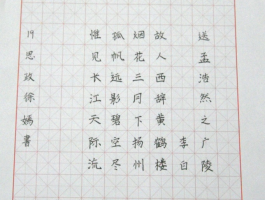 送孟浩然之广陵
李白
故人西辞黄鹤楼
烟花三月下扬州
孤帆远影碧空尽
惟见长江天际流
思政徐嫣書